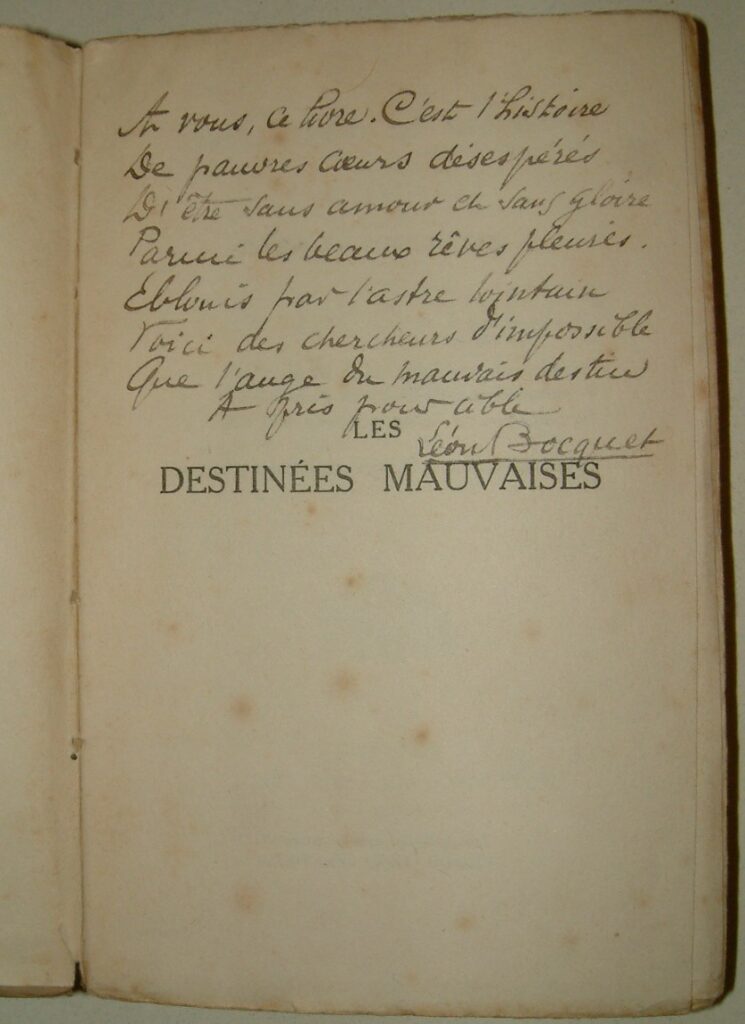 A vous, ce livre. C'est l'histoire
De pauvres cœurs désespérés
D'être sans amour et sans gloire
Parmi les beaux rêves fleuris.
Éblouis par l'astre lointain
Voici des chercheurs d'impossible
Que l'ange du mauvais destin
A pris pour cible
Léon Bocquet
LES
DESTINÉES MAUVAISES